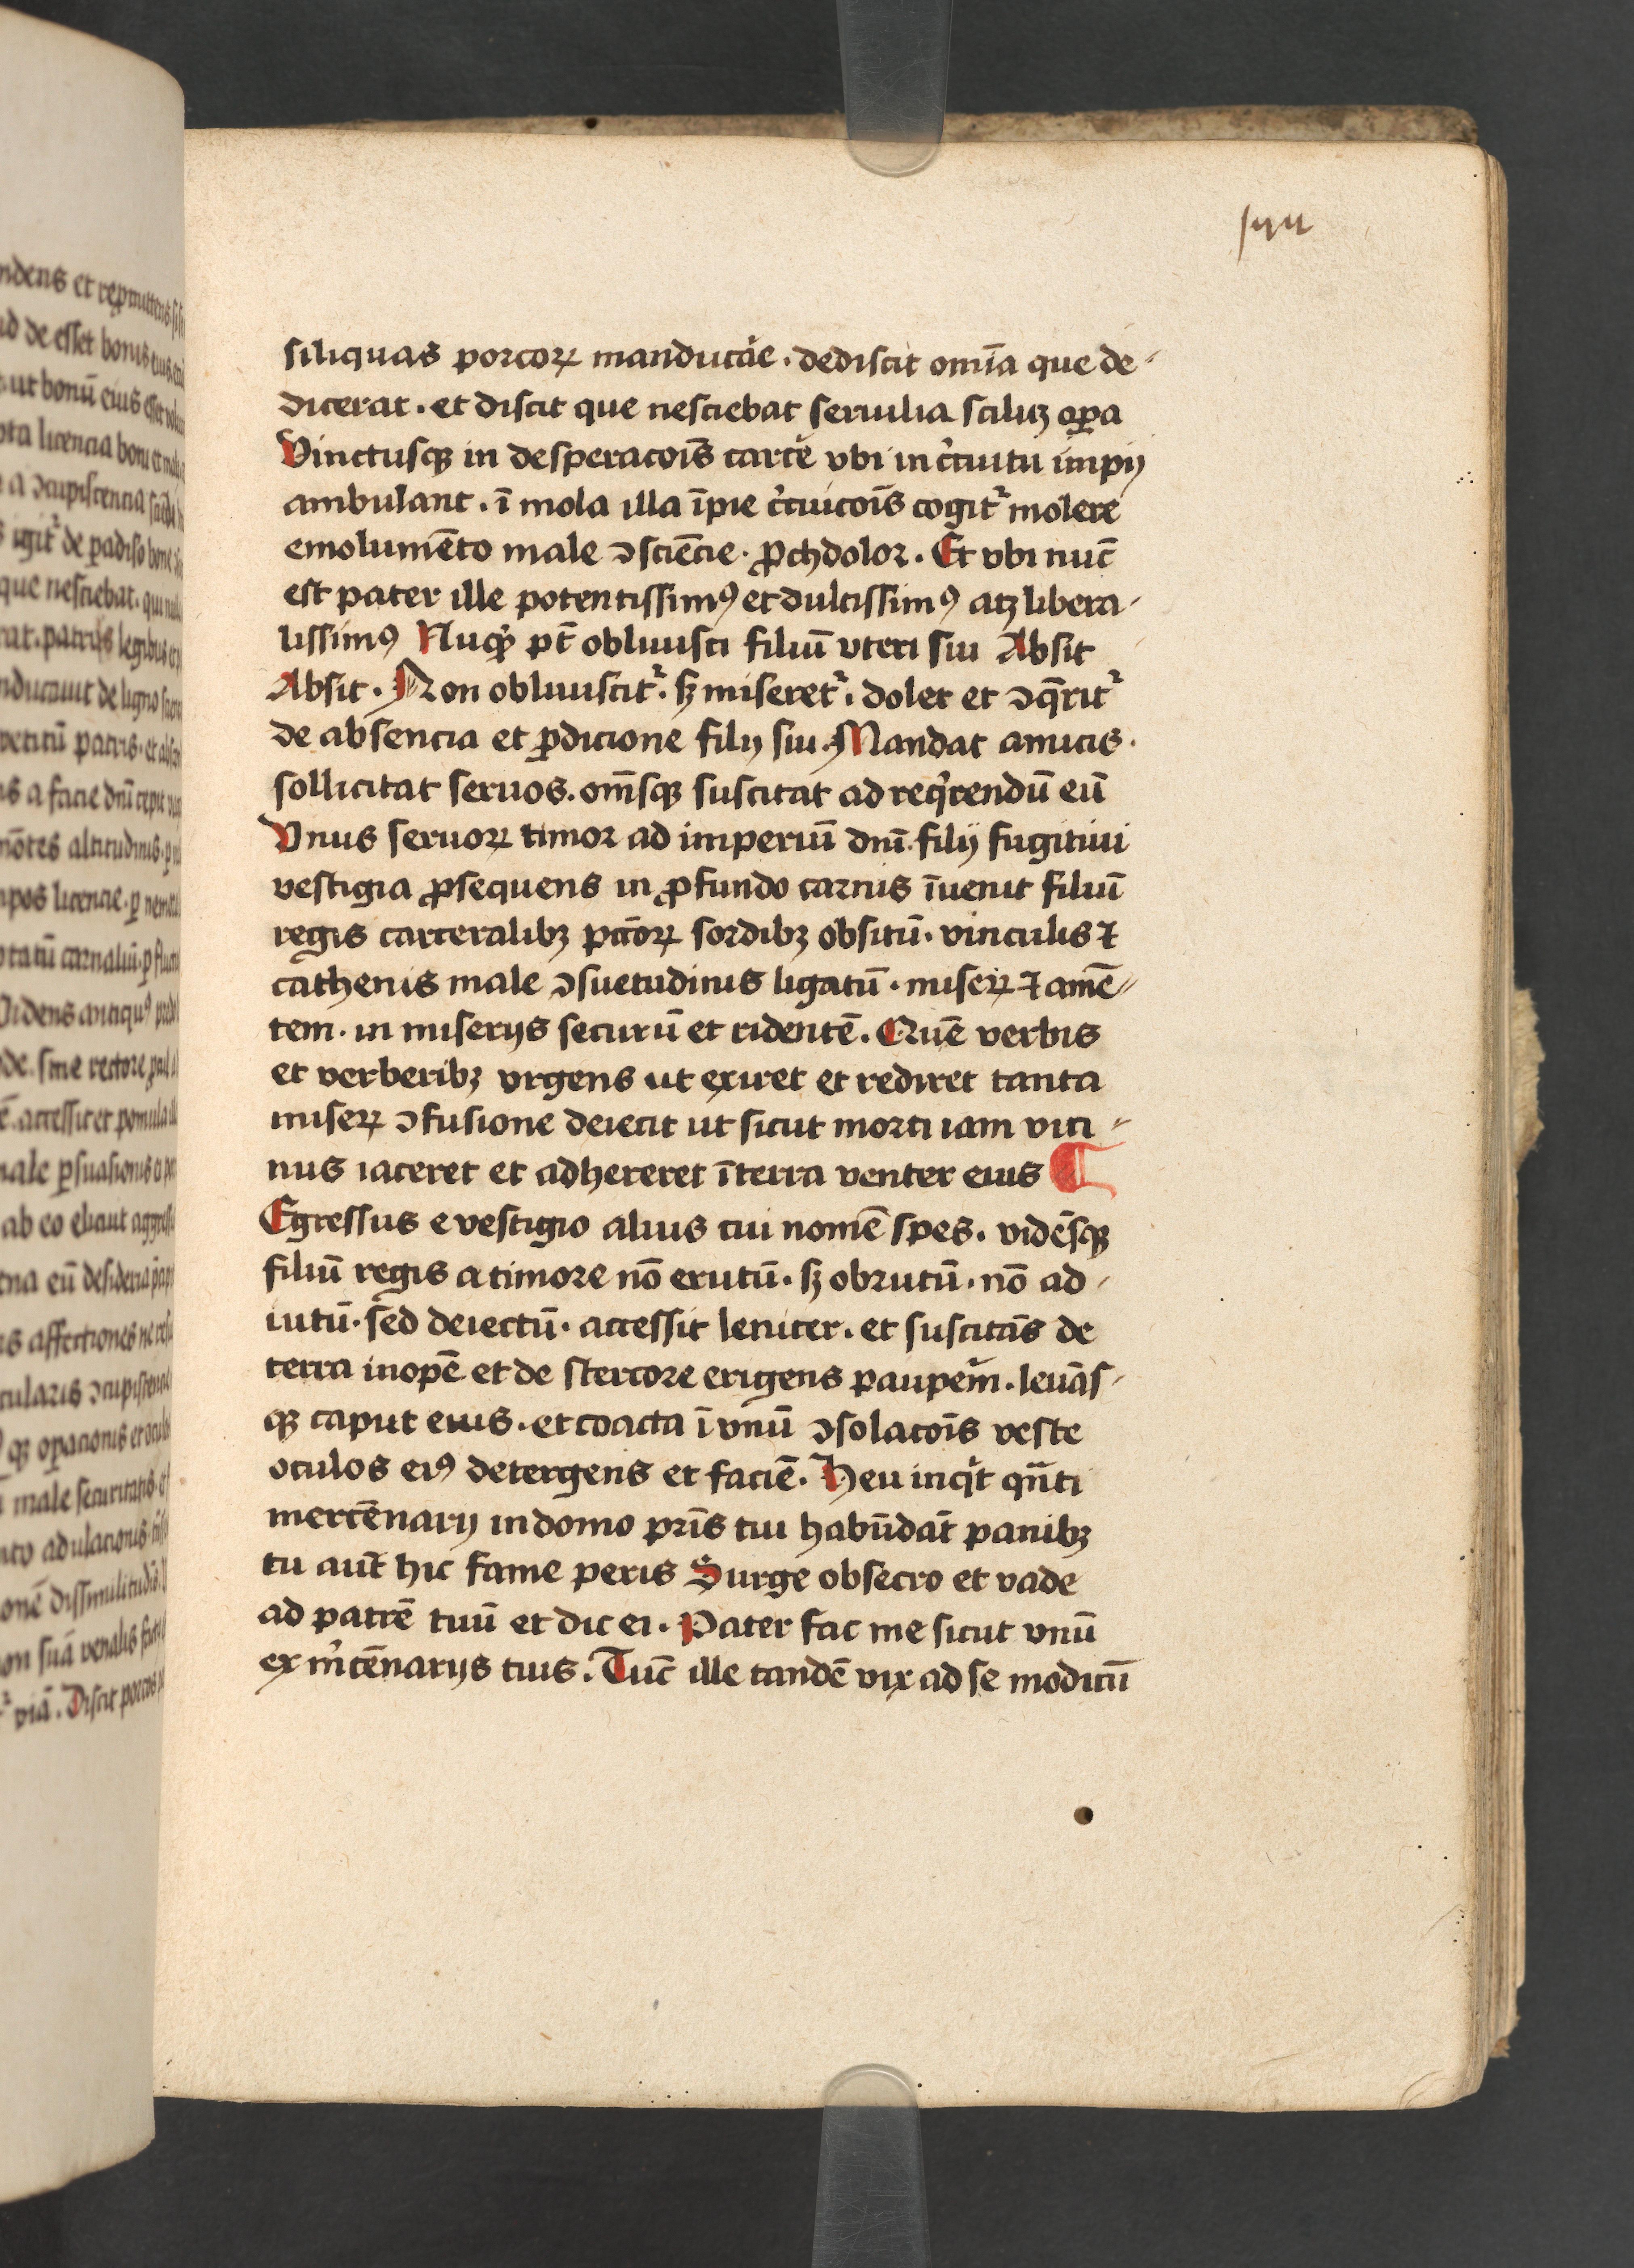 siliquas porcoꝝ manducāe · dediscit om̄ia que de-
dicerat · et discit que nesciebat seruilia scilicꝫ oꝑa
Vinctusqꝫ in desperacoīs carcē vbi in cͥcuitu impij
ambulant · ī mola illa īpie cͥcuicoīs cogitᷣ molere
emolumēto male ↄsciēcie · ꝓchdolor · Et vbi nūc
est pater ille potentissimꝰ et dulcissimꝰ atqꝫ libera-
lissimꝰ Nūqͥd pt̄ obliuisci filiū vteri sui Absit
Absit · Non obliuiscitᷣ · sꝫ miseretᷣ · dolet et ↄq̄ritᷣ
de absencia et ꝑdicione filij sui · Mandat amicis ·
sollicitat seruos · om̄sqꝫ suscitat ad reqͥrendū eū
Vnus seruoꝝ timor ad imperiū dn̄i · filij fugitiui
vestigia ꝓsequens in ꝓfundo carnis īuenit filiū
regis carceralibꝫ pc̄coꝝ sordibꝫ obsitū · vinculis ⁊
cathenis male ↄsuetudinis ligatū · miseꝝ ⁊ amē-
tem · in miserijs securū et ridentē · Quē verbis
et verberibꝫ vrgens ut exiret et rediret tanta
miseꝝ ↄfusione deiecit ut sicut morti iam vici-
nus iaceret et adhereret ī terra venter eius ¶
Egressus e vestigio alius cui nomē spes · vidēsqꝫ
filiū regis a timore nō erutū · sꝫ obrutū · nō ad-
iutū · sed deiectū · accessit leniter · et suscitās de
terra inopē et de stercore erigens paupem̄ · leuās-
qꝫ caput eius · et coacta ī vnū ↄsolacoīs veste
oculos eiꝰ detergens et faciē · Heu inqͥt qn̄ti
mercēnarij in domo pr̄is tui habūdāt panibꝫ
tu aūt hic fame peris Surge obsecro et vade
ad patrē tuū et dic ei · Pater fac me sicut vnū
ex mͬcēnarijs tuis · Tūc ille tandē vix ad se modicū